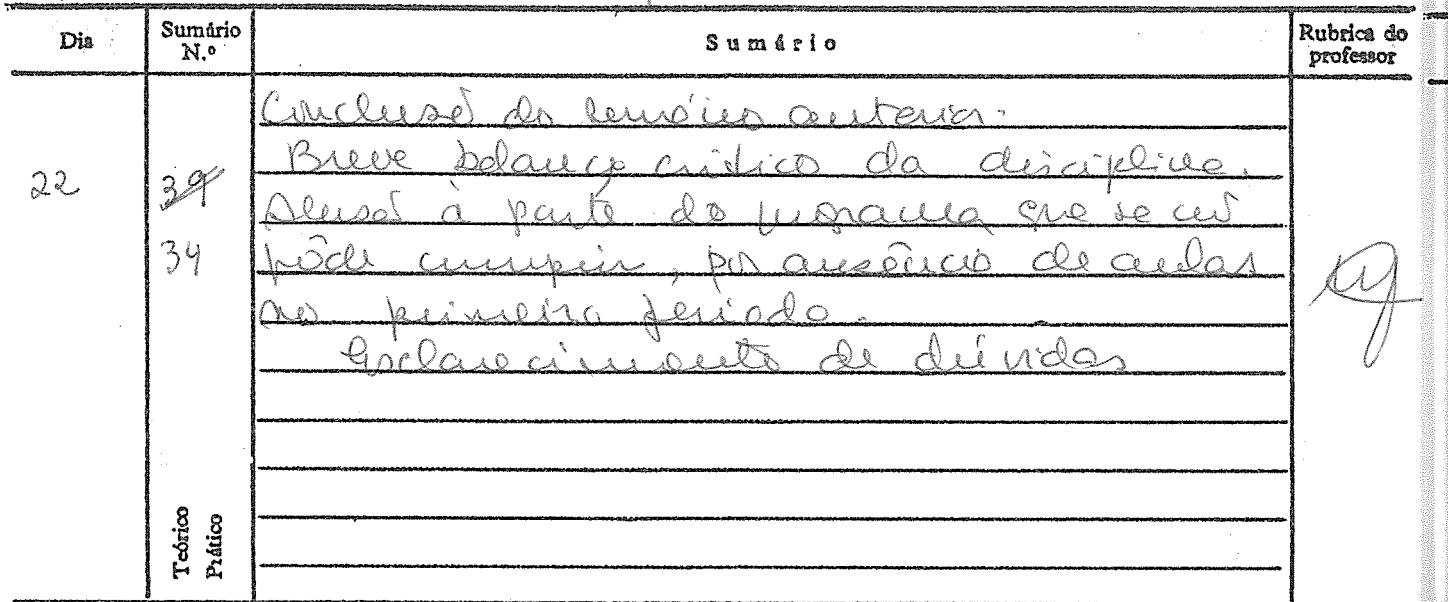 Dia
Sumário N.º
Sumário
Rubrica do professor
Conclusão do sumário anterior.
Breve balanço crítico da disciplina.
22
39
Alusão à parte do programa que se não
34
pôde cumprir, por ausência de aulas
no primeiro período.
Esclarecimento de dúvidas
Teórico
Prático